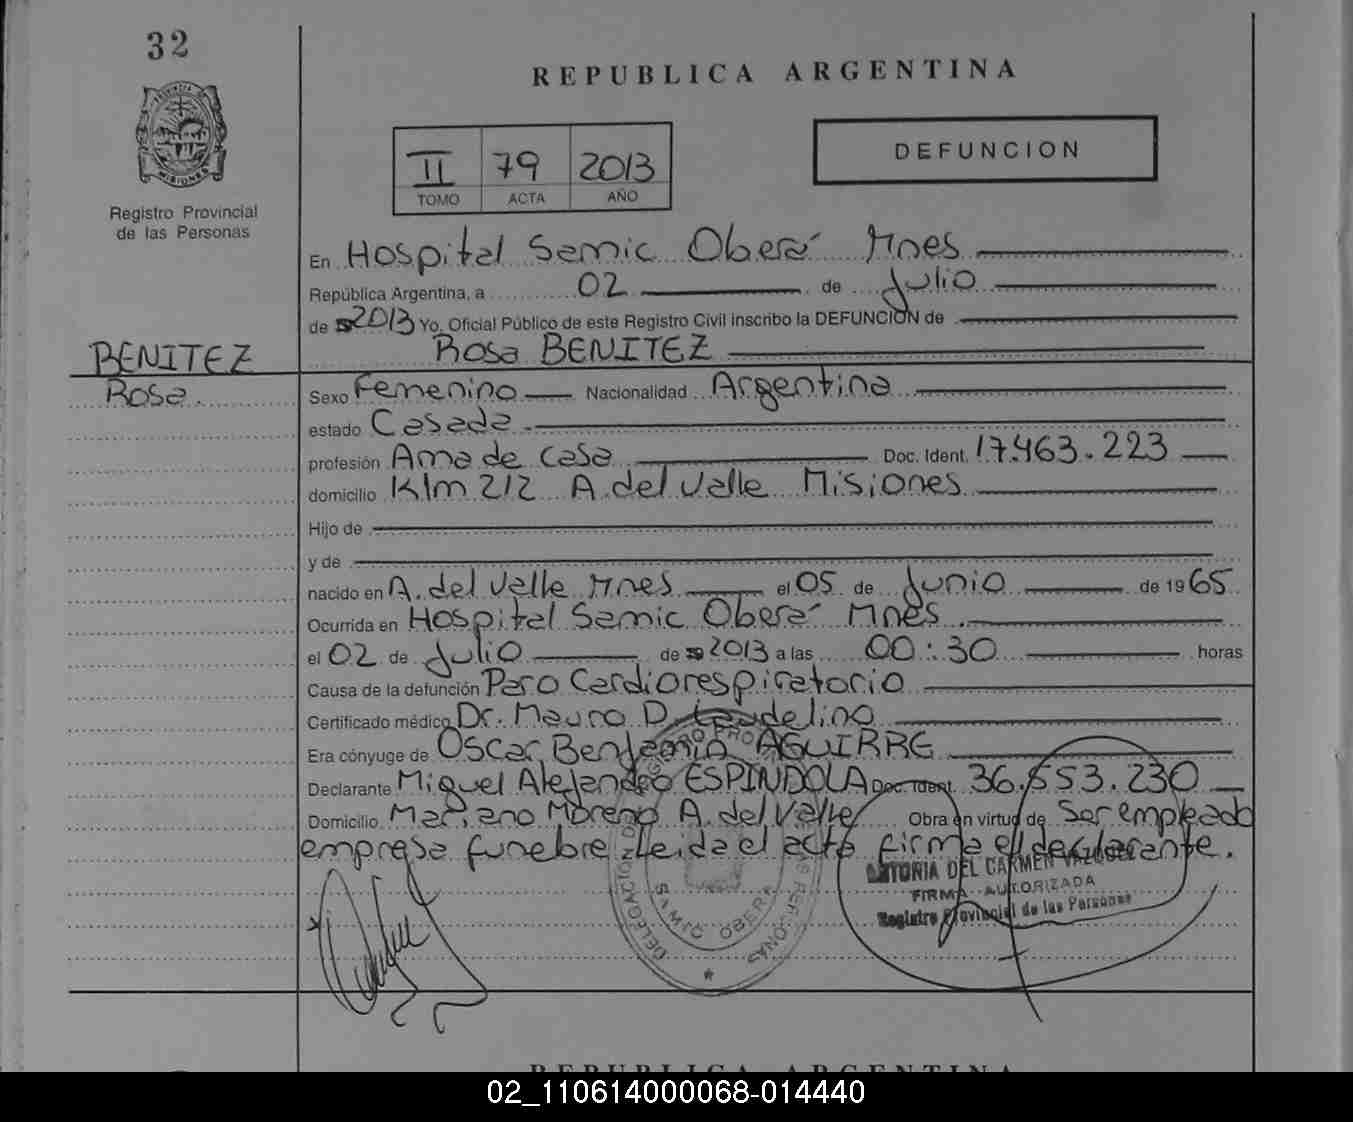 32
REPUBLICA ARGENTINA
II 79 2013
TOMO ACTA AÑO
DEFUNCION
PROVINCIA DE
MISIONES
Registro Provincial
de las Personas
En Hospital Samic Oberá Mnes
República Argentina, a 02 de Julio
de 2013 Yo, Oficial Público de este Registro Civil inscribo la DEFUNCION de
Rosa BENITEZ
BENITEZ
Rosa.
Sexo Femenino Nacionalidad Argentina
estado Casada
profesión Ama de casa Doc. Ident. 17.463.223
domicilio Klm 212 A. del Valle Misiones
Hijo de
y de
nacido en A. del Valle Mnes el 05 de Junio de 1965
Ocurrida en Hospital Samic Oberá Mnes.
el 02 de Julio de 2013 a las 00:30 horas
Causa de la defunción Paro Cardiorespiratorio
Certificado médico Dr. Mauro D.
Era cónyuge de Oscar Benjamin AGUIRRE
Declarante Miguel Alejandro ESPINDOLA Doc. Ident. 36.553.230
Domicilio Mariano Moreno A. del Valle Obra en virtud de Ser empleado
empresa funebre Leida el acta firma el declarante.
DEL CARMEN
FIRMA AUTORIZADA
Registro Provincial de las Personas
DELEGACION
SAMIC OBERA
REPUBLICA ARGENTINA
02_110614000068-014440